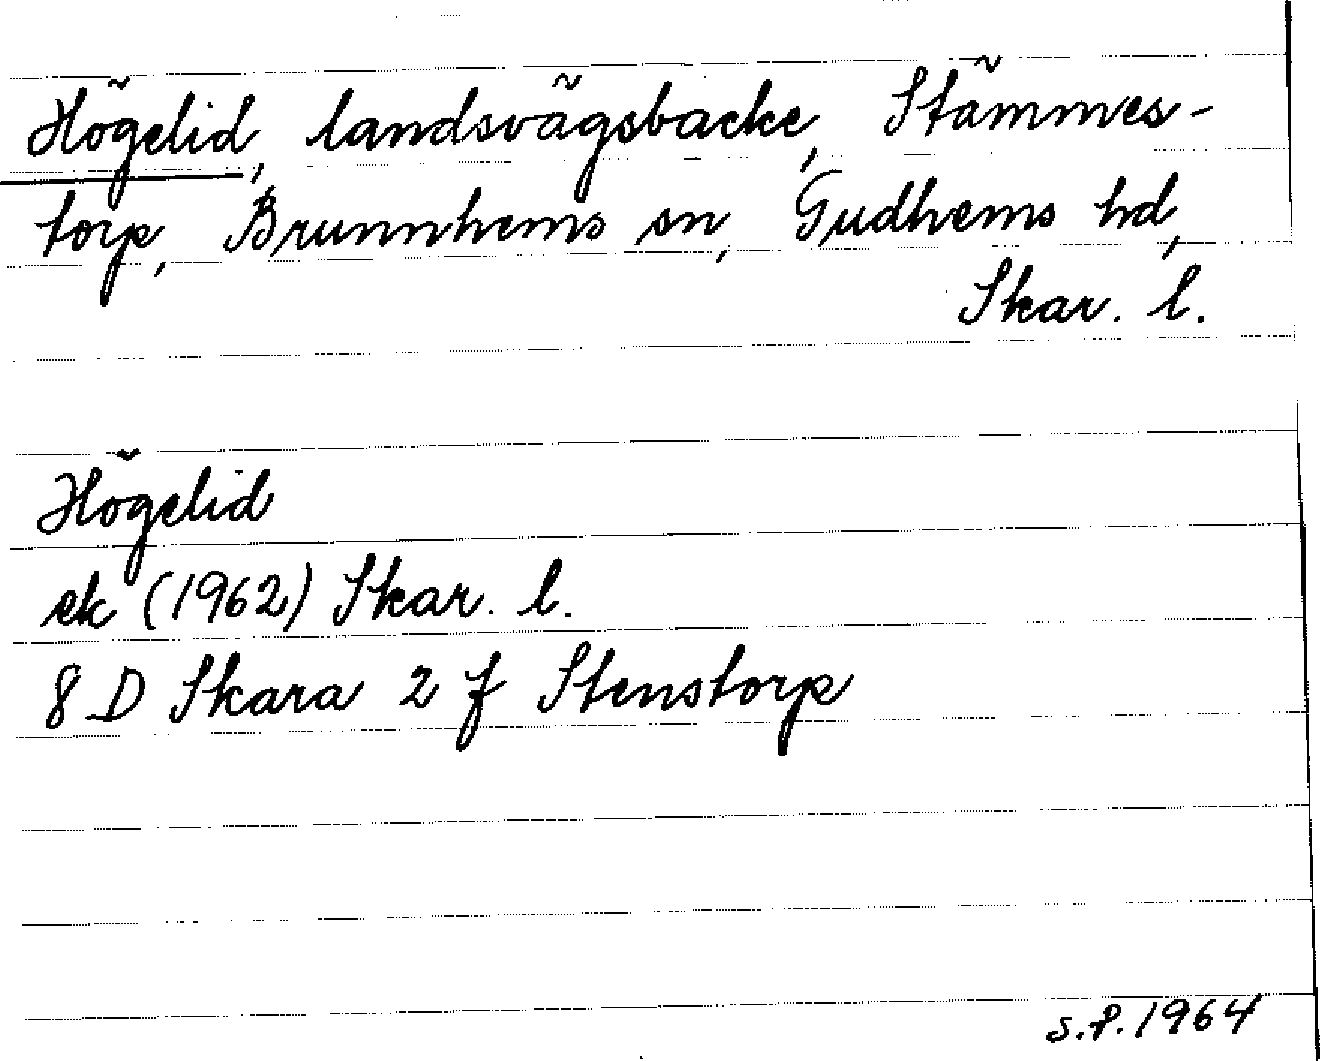 Högelid, landsvägsbacke, Stämmes-
torp, Brunnhems sn, Gudhems hd,
Skar. l.
Högelid
ek (1962) Skar. l.
8 D Skara 2 f Stenstorp
s.f. 1964